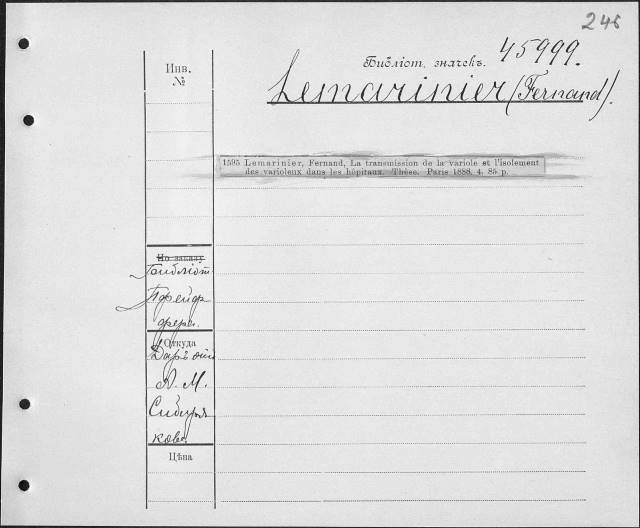 246
Библіот. значекъ. 45999.
Lemarinier (Fernand).
Инв.
№
1595 Lemarinier, Fernand, La transmission de la variole et l'isolement
des varioleux dans les hôpitaux. Thèse. Paris 1888. 4. 85 p.
По заказу
Библіот.
Пфейф
фера.
Откуда
Даръ
А. М.
Сибиря
кова.
Цѣна